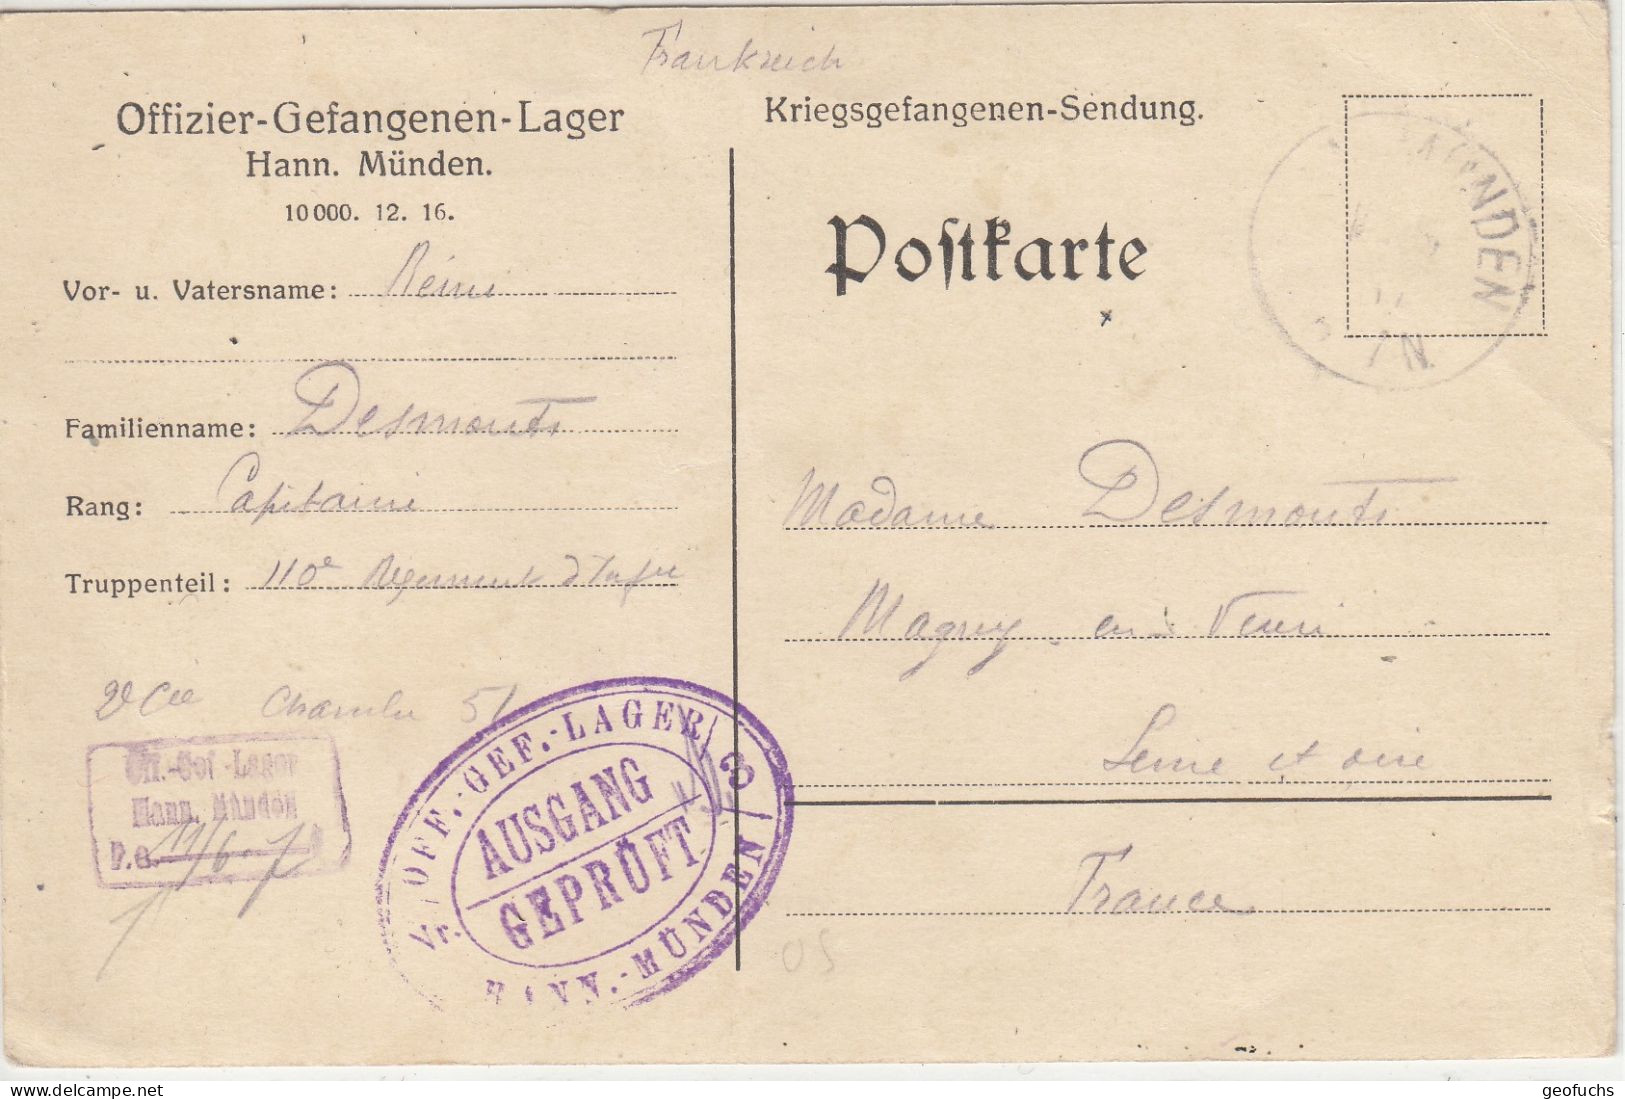 Frankreich
Offizier-Gefangenen-Lager
Hann. Münden.
10 000. 12. 16.
Vor- u. Vatersname:
Familienname: Desmonts
Rang: Capitaine
Truppenteil: 110e Régiment d'Infrie
2e Cie Chambre 51
Off.-Gef.-Lager
Hann. Münden
P.a. 11/6.
OFF.-GEF.-LAGER
AUSGANG
GEPRÜFT
HANN.-MÜNDEN
Nr. 3
Kriegsgefangenen-Sendung.
Postkarte
MÜNDEN
Madame Desmonts
Magny en Vexin
Seine et oise
France
05
geofuchs